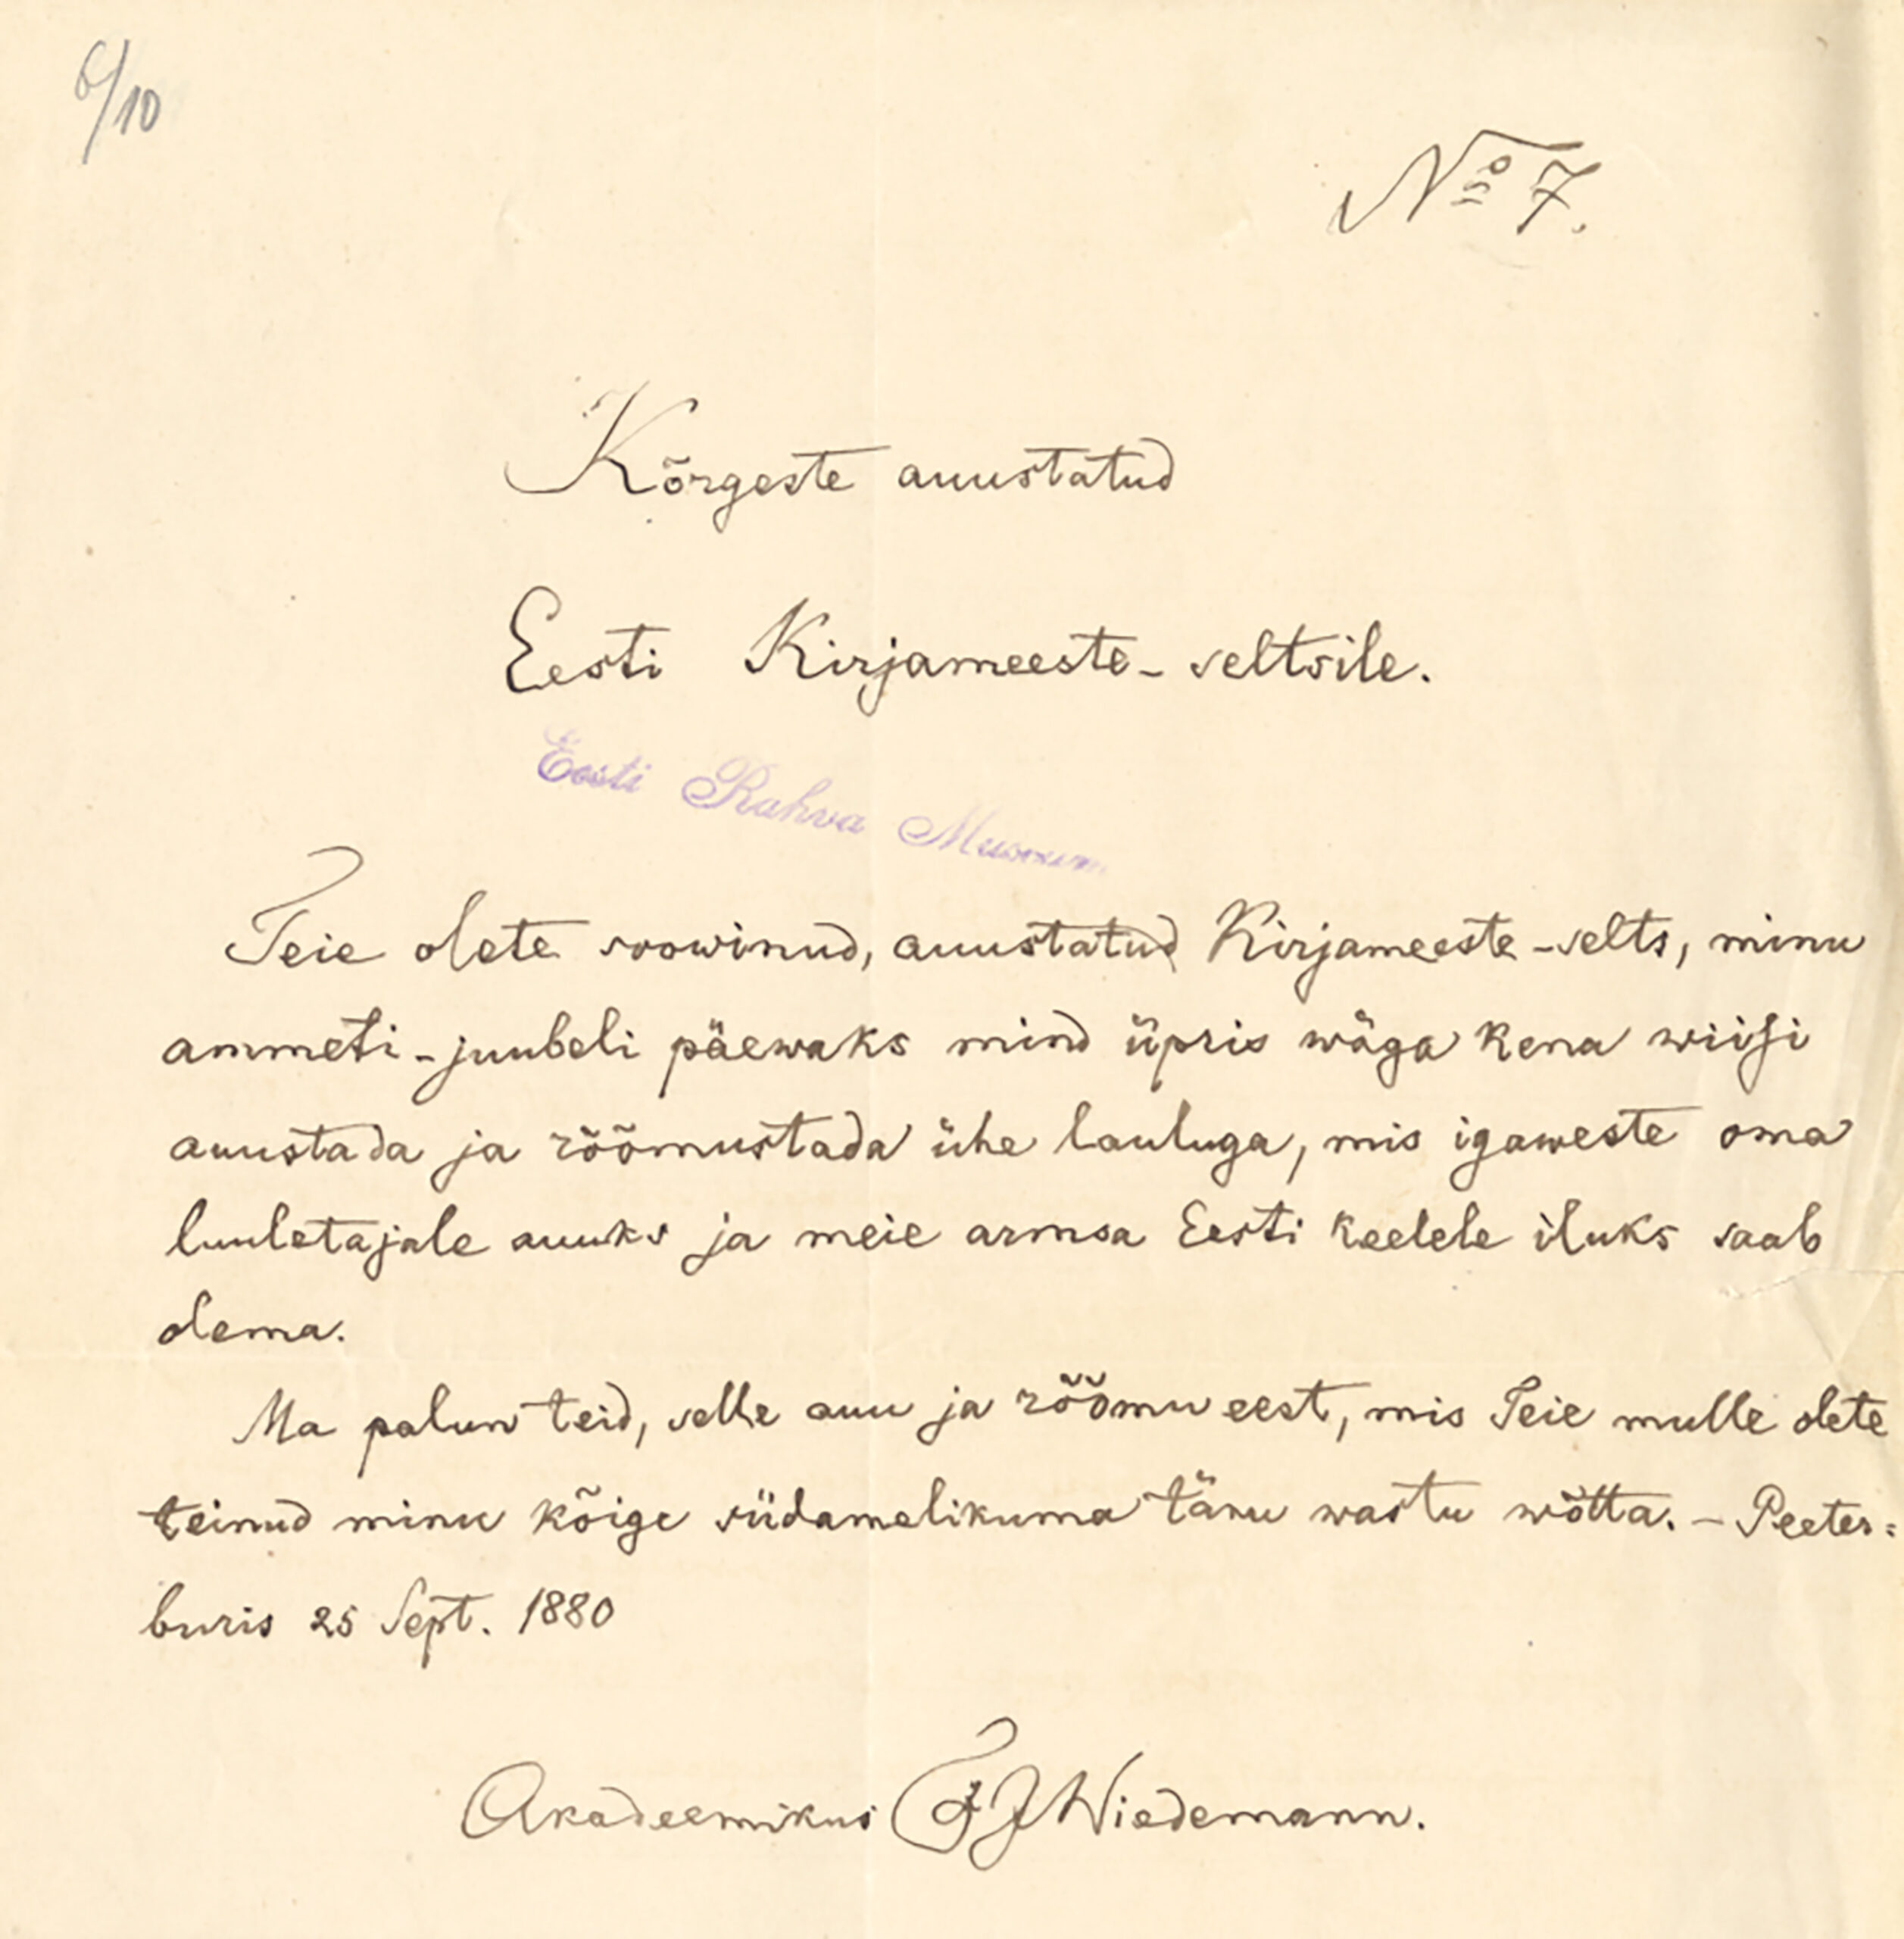 6/10
No 7.
Kõrgeste auustatud
Eesti Kirjameeste-seltsile.
Eesti Rahva Museum.
Teie olete soowinud, auustatud Kirjameeste-selts, minu
ammeti-juubeli päewaks mind üpris wäga kena wiisi
auustada ja rõõmustada ühe lauluga, mis igaweste oma
luuletajale auuks ja meie armsa Eesti keelele iluks saab
olema.
Ma palun teid, selle auu ja rõõmu eest, mis Teie mulle olete
teinud minu kõige südamelikuma tänu wastu wõtta. – Peeter=
buris 25 Sept. 1880
Akadeemikus FJWiedemann.